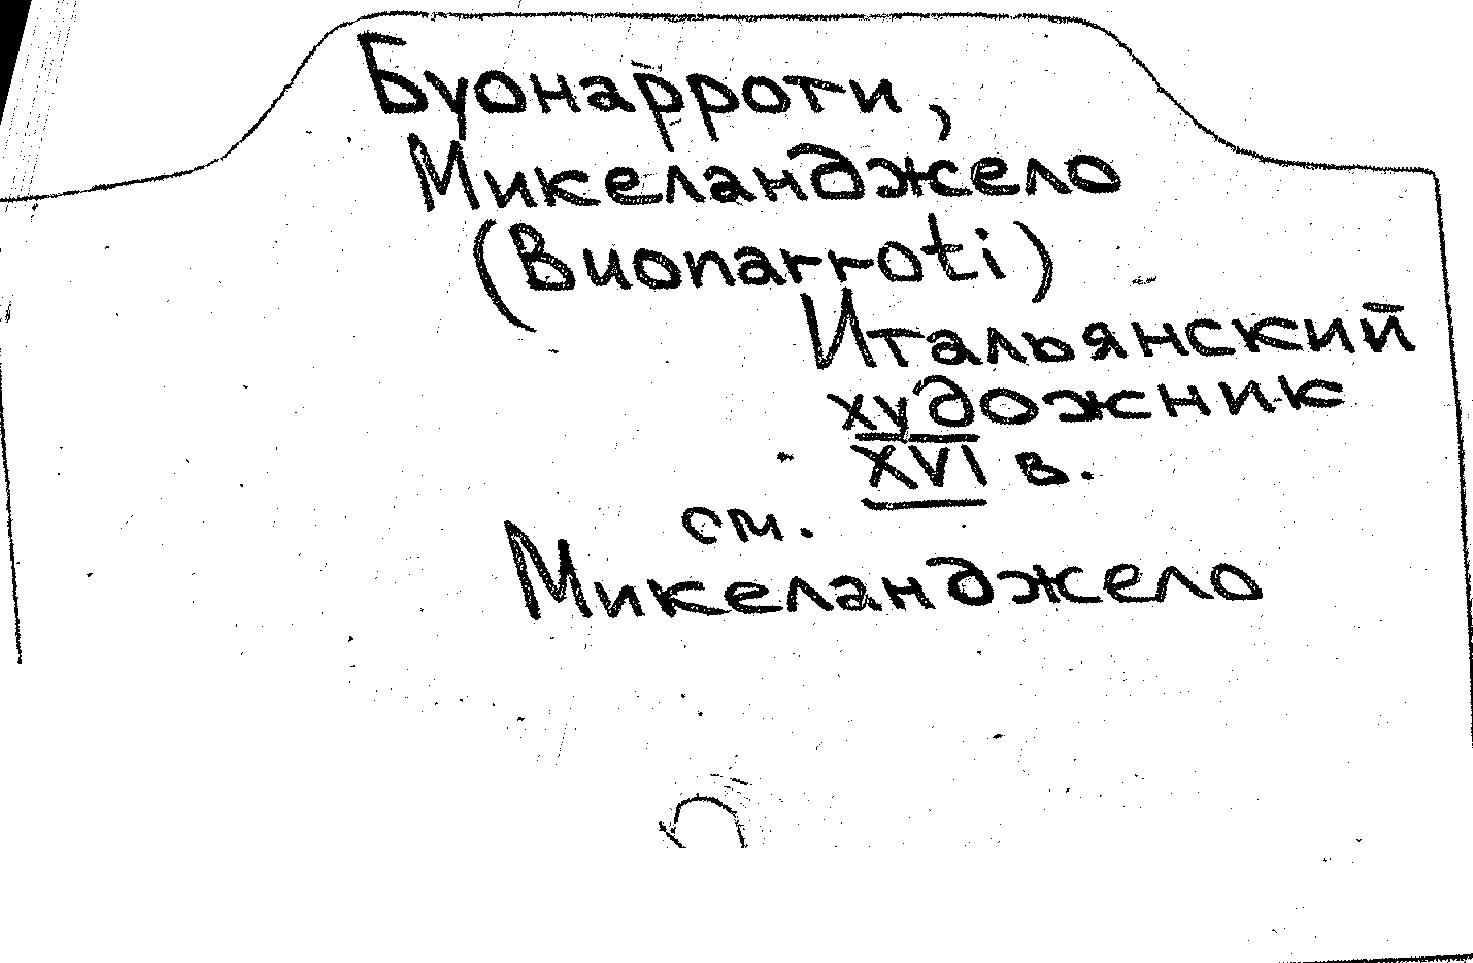 Буонарроти,
Микеланджело
(Buonarroti)
Итальянский
художник
XVI в.
см.
Микеланджело